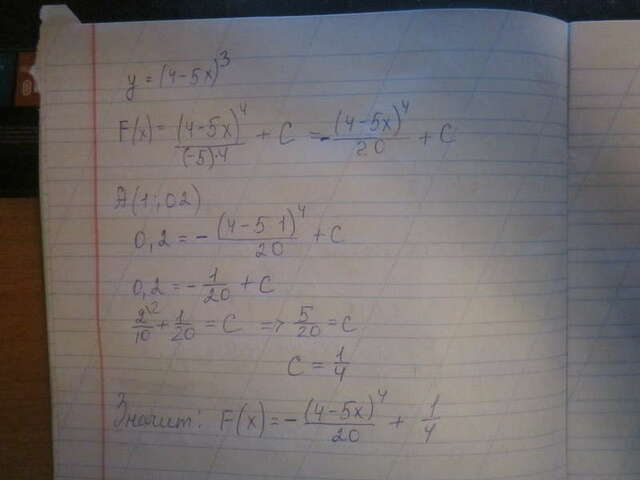 y = (4-5x)^3
F(x) = (4-5x)^4/((-5)·4) + C = -(4-5x)^4/20 + C
A(1;,02)
0,2 = -(4-5·1)^4/20 + C
0,2 = -1/20 + C
2^2/10 + 1/20 = C => 5/20 = C
C = 1/4
Значит: F(x) = -(4-5x)^4/20 + 1/4